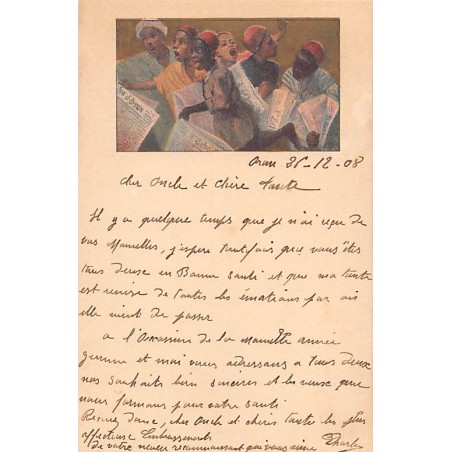 Oran 26-12-08
cher Oncle et chère tante
Il y a quelque temps que je n'ai reçu de
vos Nouvelles, j'espère toutefois que vous êtes
tous deux en Bonne Santé et que ma tante
est remise de toutes les émotions par où
elle vient de passer
a l'Occasion de la Nouvelle année
et moi vous adressons a tous deux
nos souhaits bien sincères et les vœux que
nous formons pour votre santé
Recevez donc, cher Oncle et chère tante les plus
affectueux Embrassements
de votre neveu reconnaissant qui vous aime
Charles